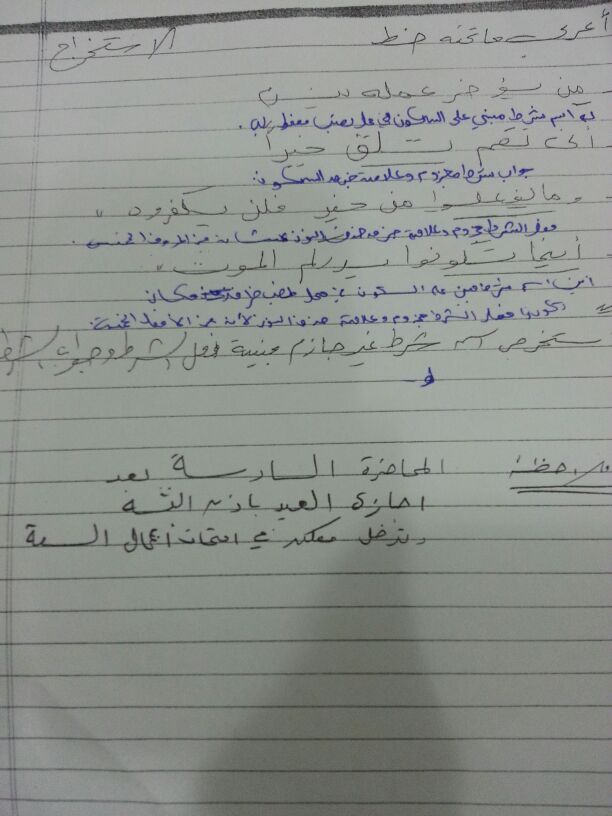 أعرب ما تحته خط الاستخراج
من يؤخر عمله يندم
اسم شرط مبني على السكون في محل نصب مفعول به .
تلق خيراً
جواب شرط مجزوم وعلامة جزمه السكون
وما تفعلوا من خير فلن يكفروه "
فعل الشرط مجزوم وعلامة جزمه حذف النون لأنه من الافعال الخمسة .
أينما تكونوا يدرككم الموت "
اسم شرط مبني على السكون في محل نصب ظرف مكان
تكونوا فعل الشرط مجزوم وعلامة حذف النون لأنه من الافعال الخمسة
ستخرج اسم شرط غير جازم مبينة فعل الشرط وجواب الشرط
ملاحظة المحاضرة السادسة بعد
اجازة العيد باذن الله
وتدخل معكم في امتحان اعمال السنة